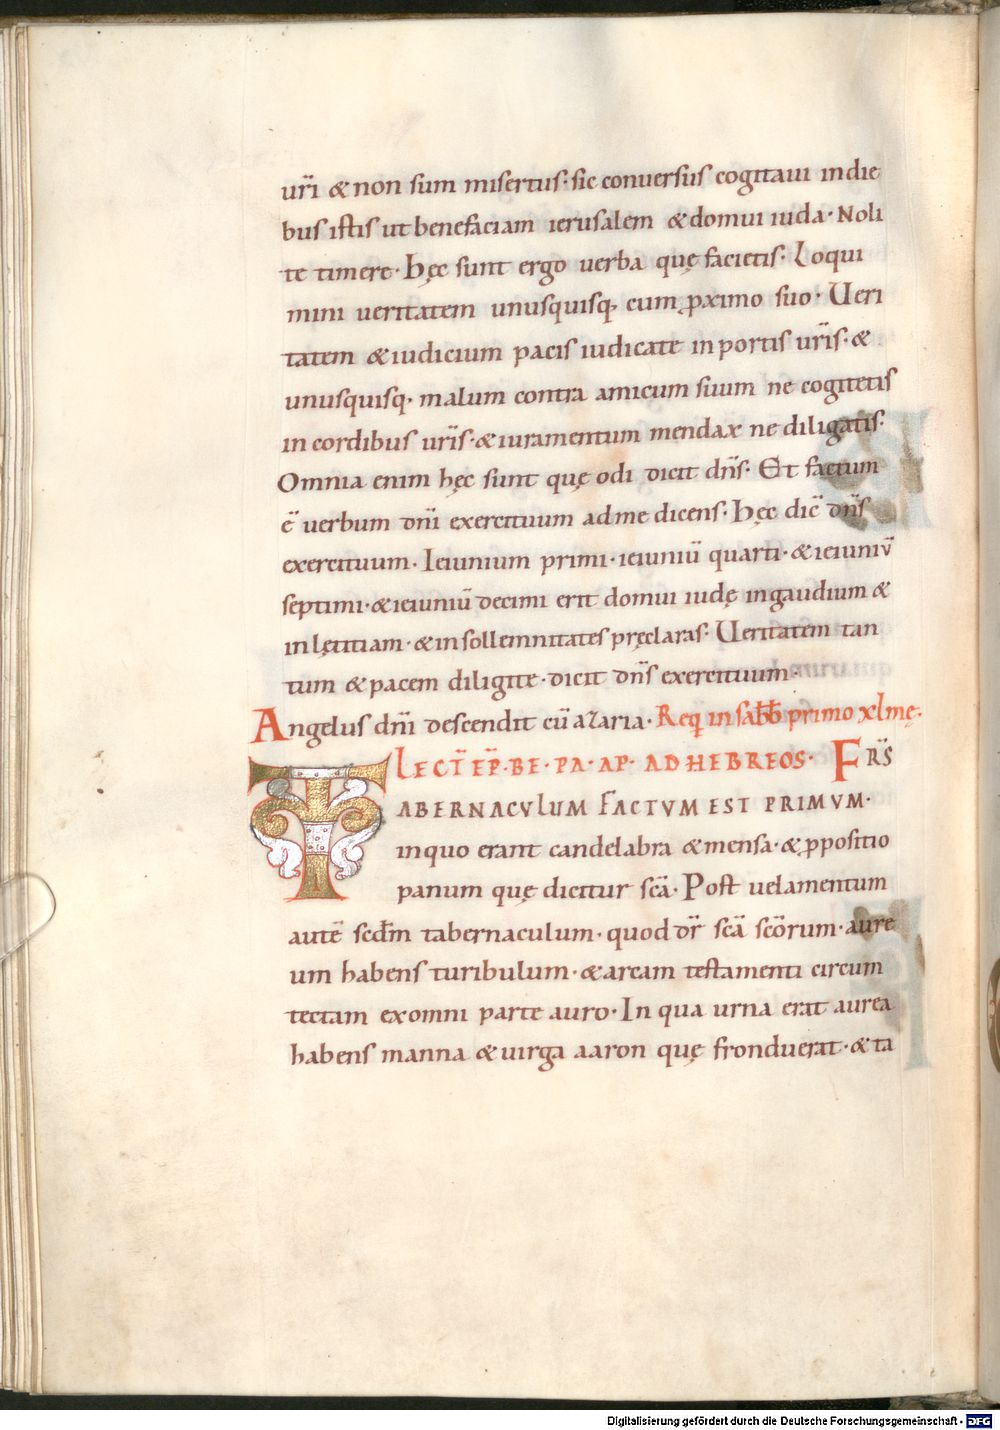 ur̅i & non sum misertus· sic conuersus cogitaui in die
bus istis ut benefaciam ierusalem & domui iuda· Noli
te timere· Hęc sunt ergo uerba quę facietis· Loqui
mini ueritatem unusquisq; cum ꝓximo suo· Ueri
tatem & iudicium pacis iudicate in portis ur̅is· &
unusquisq; malum contra amicum suum ne cogitetis
in cordibus ur̅is· & iuramentum mendax ne diligatis·
Omnia enim hęc sunt quę odi dicit dn̅s· Et factum
e̅ uerbum dn̅i exercituum ad me dicens· Hęc dic̅ dn̅s
exercituum· Ieiunium primi· ieiuniu̅ quarti· & ieiuniu̅
septimi· & ieiuniu̅ decimi erit domui iudę in gaudium &
in lętitiam· & in sollemnitates pręclaras· Ueritatem tan
tum & pacem diligite· dicit dn̅s exercituum·
Angelus dn̅i descendit cu̅ azaria· Req̅ in sabb̅ primo xlmę·
LECT̅ EP̅· BE· PA· AP· AD HEBREOS· FR̅S
TABERNACVLUM FACTVM EST PRIMVM·
in quo erant candelabra & mensa· & ꝓpositio
panum quę dicitur sc̅a· Post uelamentum
aute̅ scd̅m tabernaculum· quod dr̅ sc̅a sc̅orum· aure
um habens turibulum· & arcam testamenti circum
tectam ex omni parte auro· In qua urna erat aurea
habens manna & uirga aaron quę fronduerat· & ta
Digitalisierung gefördert durch die Deutsche Forschungsgemeinschaft - DFG